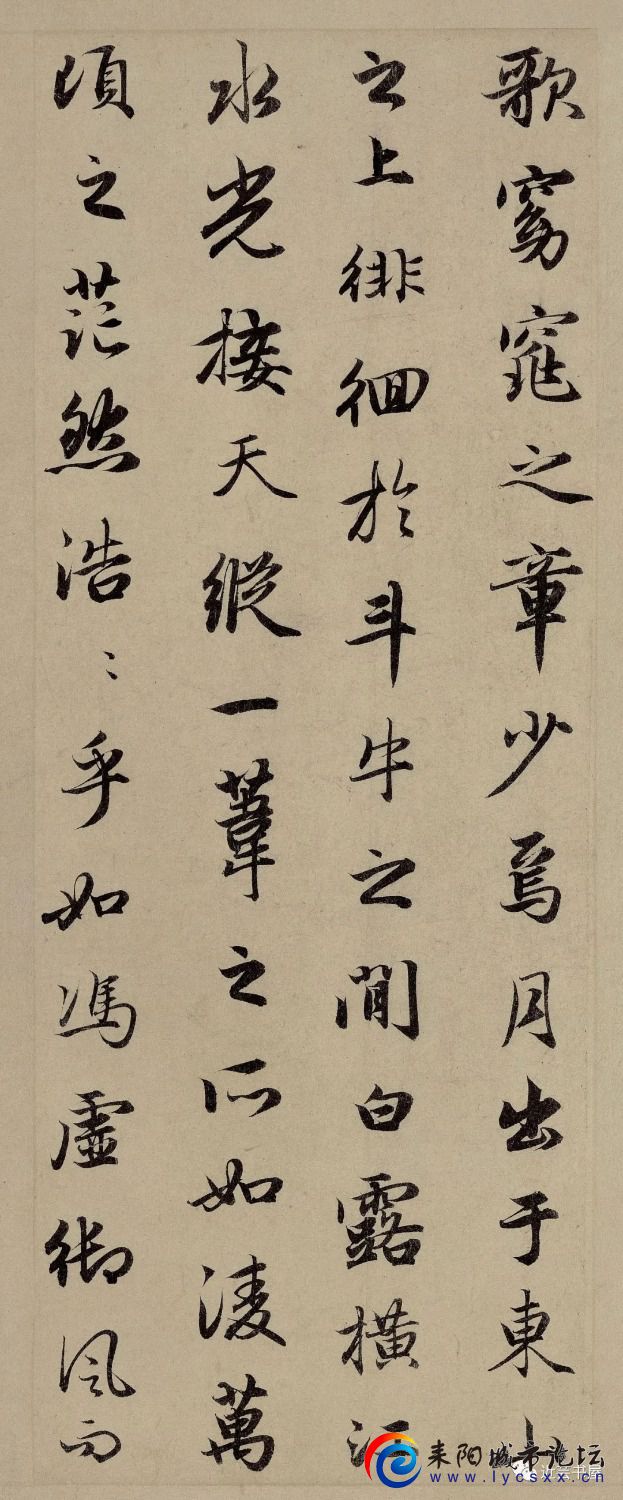 歌窈窕之章少焉月出于東
之上徘徊於斗牛之間白露橫江
水光接天縱一葦之所如凌萬
頃之茫然浩〻乎如馮虛御風而
耒阳城市论坛
www.lycsxx.cn